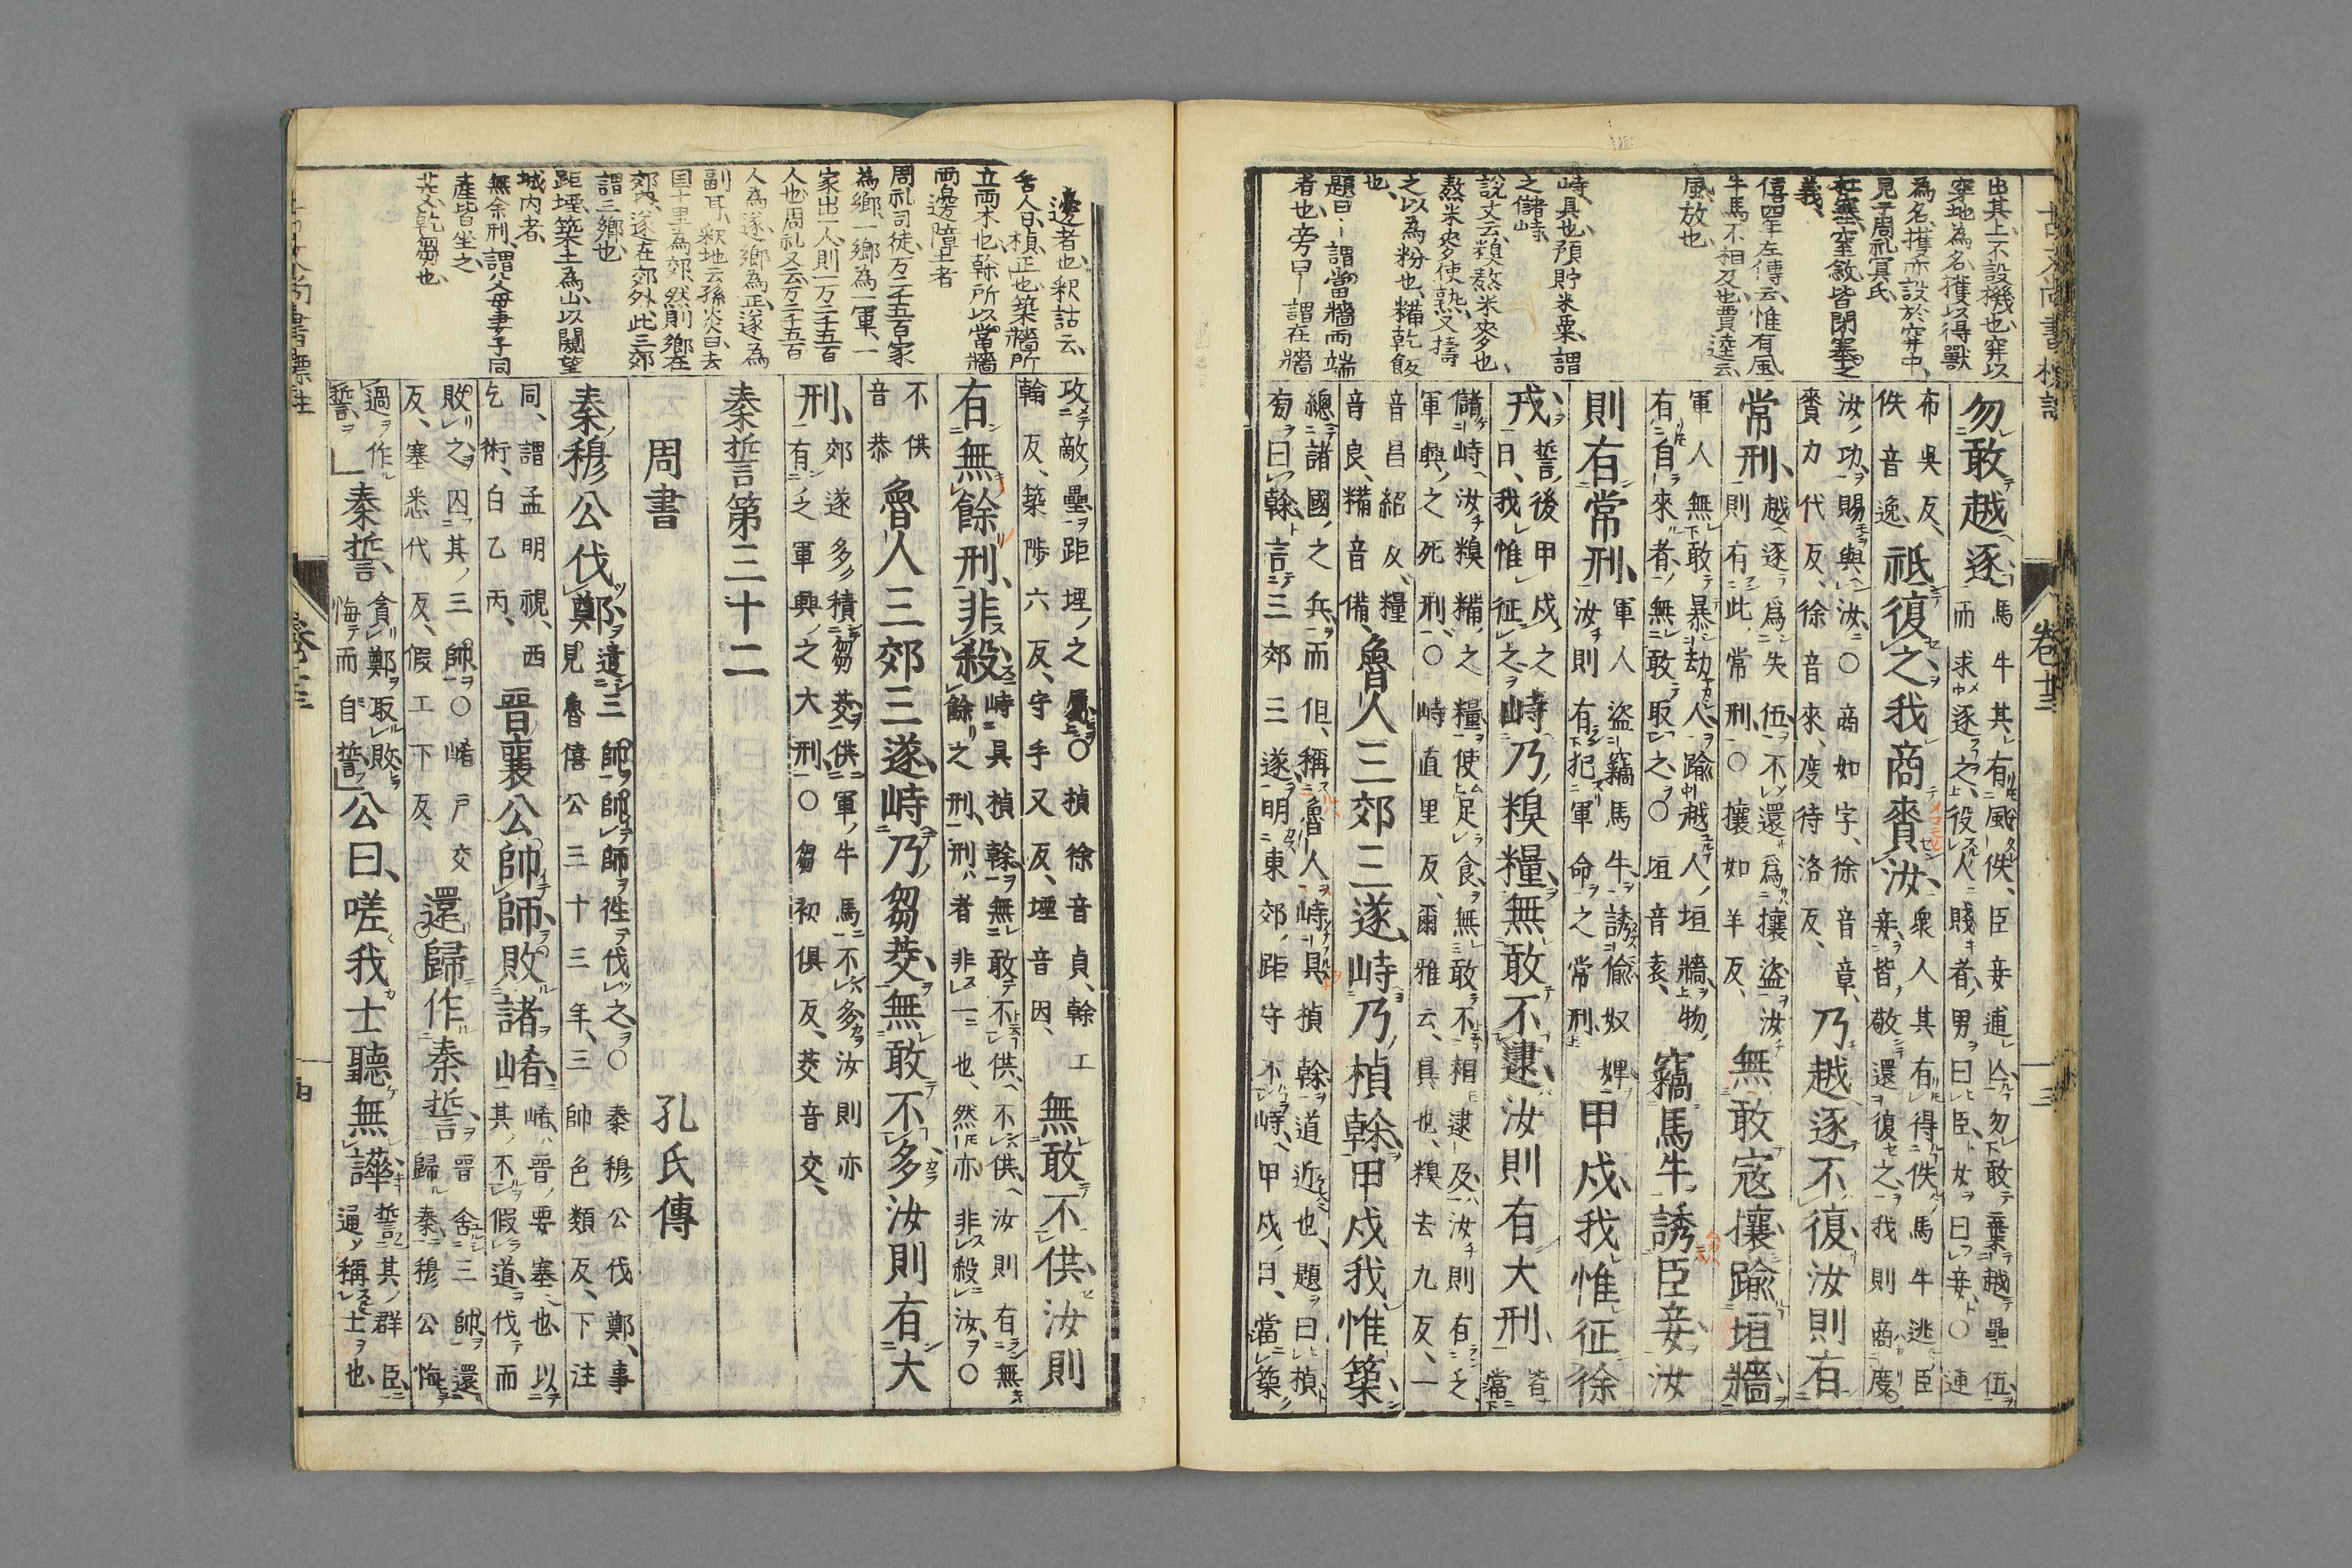 出其上不設機也穽以
穿地為名擭以得獸
為名擭亦設於穽中
見于周礼冥氏
杜塞窒斂皆閉塞之
義
僖四年左傳云惟有風
牛馬不相及也賈逵云
風放也
峙具也預貯米粟謂
之儲峙
說文云糗熬米麥也
熬米麥使熟又擣
之以為粉也糒乾飯
也
題曰―謂當牆兩端
者也旁曰―謂在牆
勿敢越逐馬牛其有風佚臣妾逋亾勿敢棄越壘伍而求逐之役人賤者男曰臣女曰妾○逋
布吳反佚音逸祗復之我商賚汝衆人其有得佚馬牛逃臣妾皆敬還復之我則商度
汝功賜與汝○商如字徐音章賚力代反徐音來度待洛反乃越逐不復汝則有
常刑越逐爲失伍不還爲攘盜汝則有此常刑○攘如羊反無敢寇攘踰垣牆
軍人無敢暴劫人踰越人垣牆物有自來者無敢取之○垣音袁竊馬牛誘臣妾汝
則有常刑軍人盜竊馬牛誘偷奴婢汝則有犯軍命之常刑甲戍我惟征徐
戎誓後甲戍之日我惟征之峙乃糗糧無敢不逮汝則有大刑皆當
儲峙汝糗糒之糧使足食無敢不相逮及汝則有乏軍興之死刑○峙直里反爾雅云具也糗去九反一
音昌紹反糧音良糒音備魯人三郊三遂峙乃楨榦甲戍我惟築
總諸國之兵而但稱魯人峙具楨榦道近也題曰楨旁曰榦言三郊三遂明東郊距守不峙甲戍日當築
卷十三
邊者也釈詁云
舍人曰楨正也築牆所
立兩木也榦所以當牆
兩邊障土者
周礼司徒万二千五百家
為鄉一鄉為一軍一
家出一人則一万二千五百
人也周礼又云万二千五百
人為遂鄉為正遂為
副耳釈地云孫炎曰去
国十里為郊然則鄉在
郊內遂在郊外此三郊
謂三鄉也
距堙築土為山以闚望
城內者
無余刑謂父母妻子同
產皆坐之
茭乾芻也
攻敵壘距堙之屬○楨徐音貞榦工翰反築陟六反守手又反堙音因無敢不供汝則
有無餘刑非殺峙具楨榦無敢不供不供汝則有無餘之刑刑者非一也然亦非殺汝○
不供音恭魯人三郊三遂峙乃芻茭無敢不多汝則有大
刑郊遂多積芻茭供軍牛馬不多汝則亦有乏軍興之大刑○芻初俱反茭音交
秦誓第三十二
周書　孔氏傳
秦穆公伐鄭遣三帥帥師往伐之○秦穆公伐鄭事見魯僖公三十三年三帥色類反下注
同謂孟明視西乞術白乙丙晉襄公帥師敗諸崤崤晉要塞也以其不假道伐而
敗之囚其三帥○崤戶交反塞悉代反假工下反還歸作秦誓晉舍三帥還歸秦穆公悔
過作誓秦誓貪鄭取敗悔而自誓公曰嗟我士聽無譁誓其群臣通稱士也